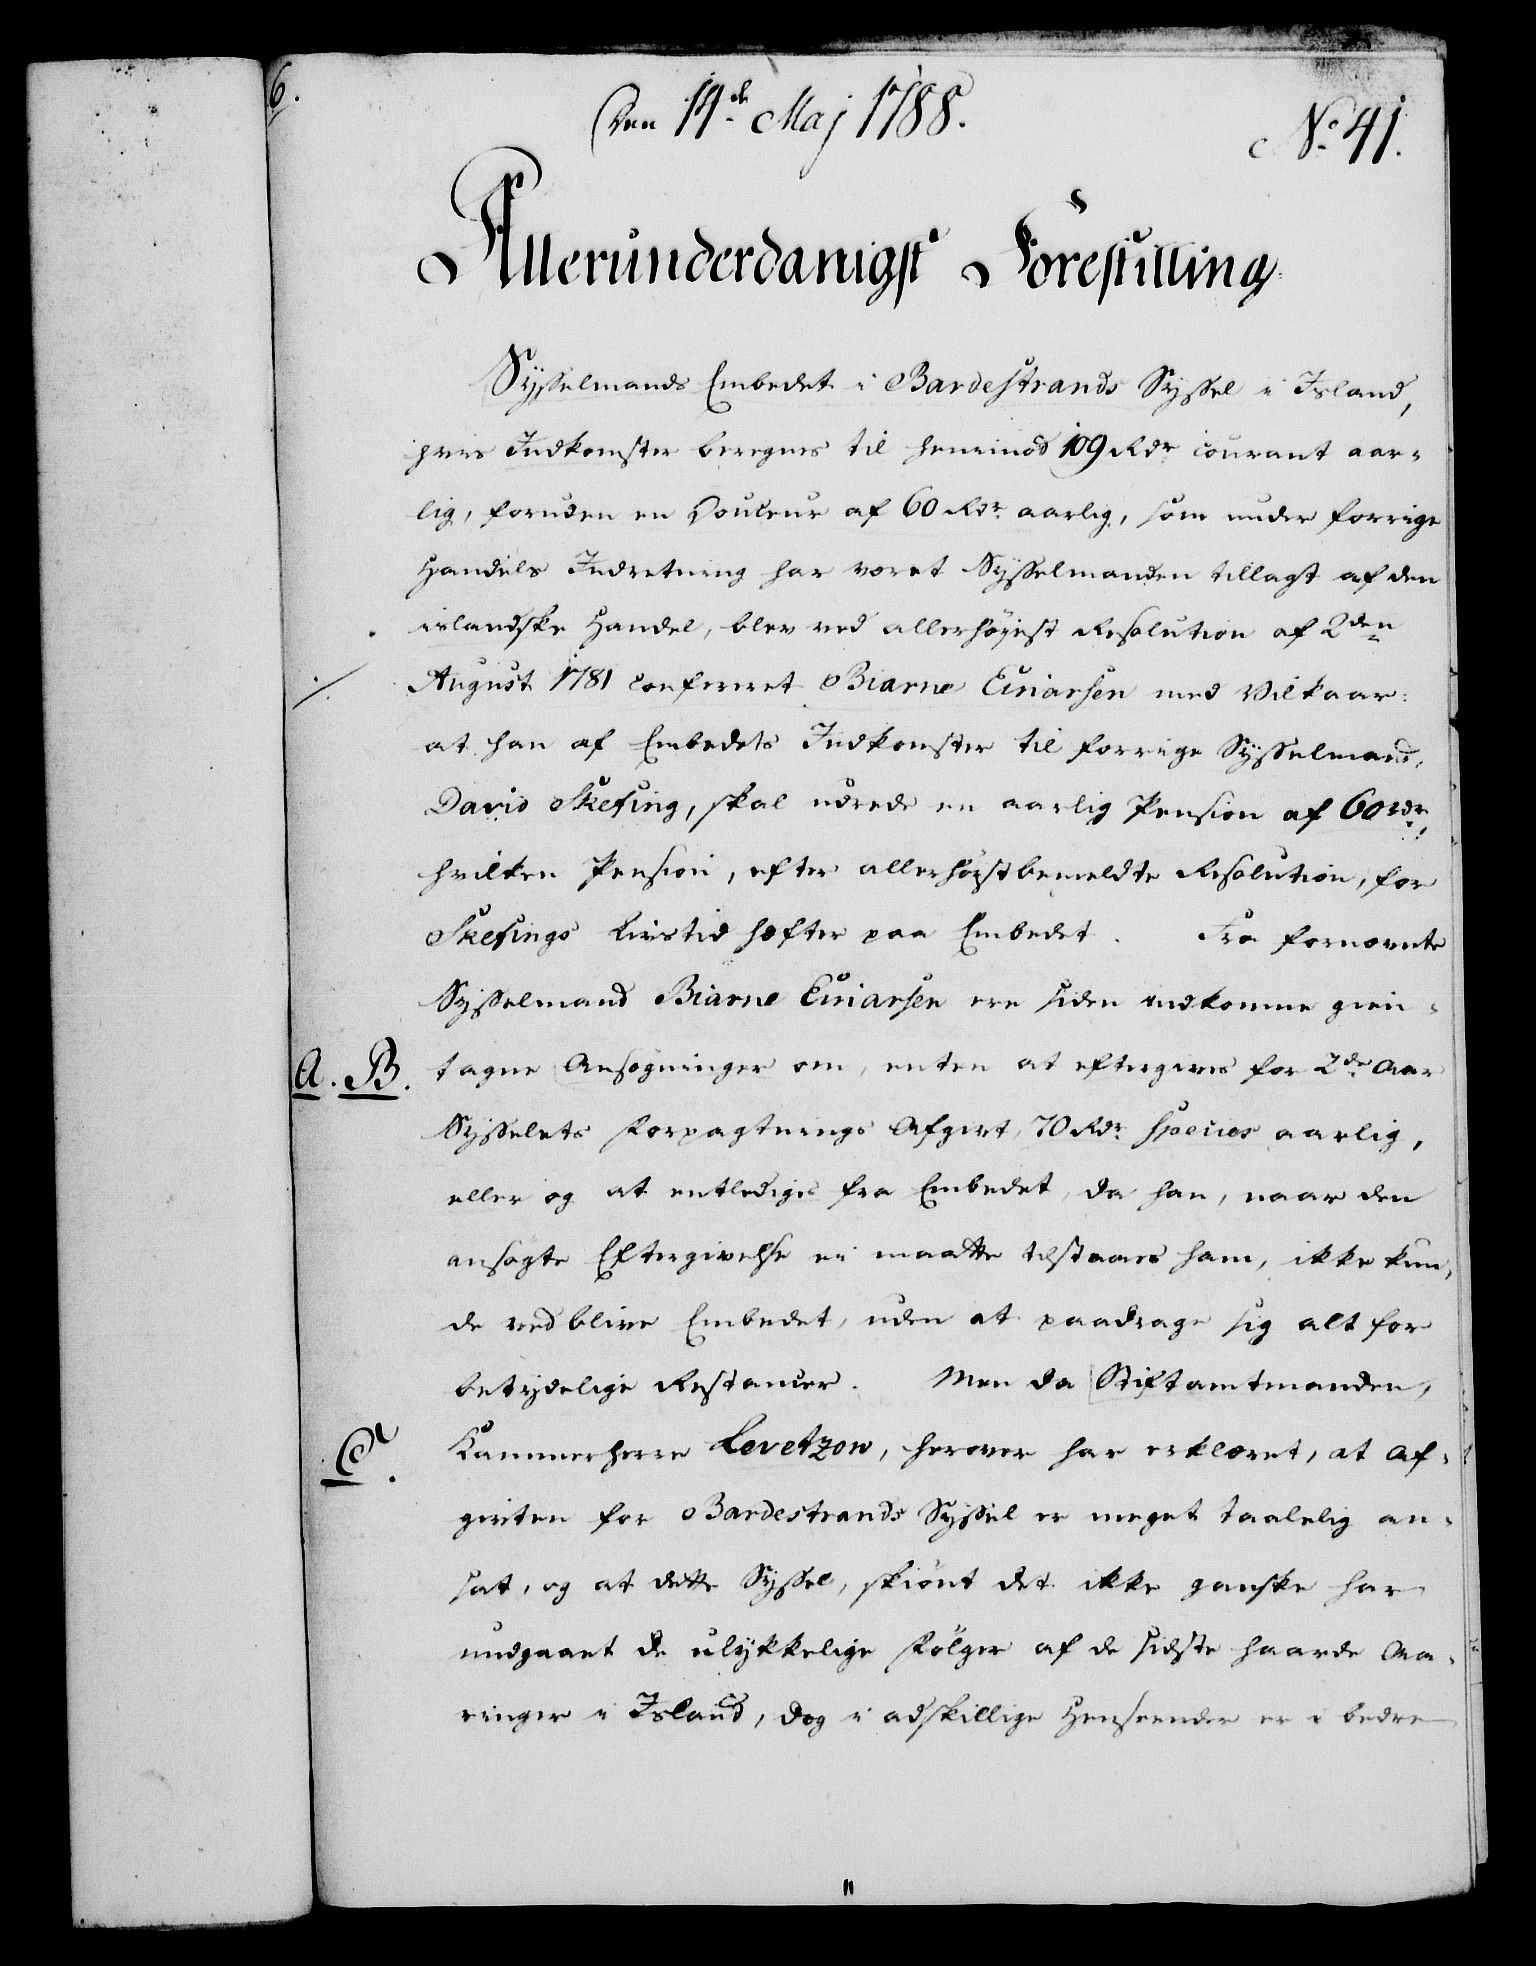 6.
Den 14de Maj 1788.
No 41.
Allerunderdanigst Forestilling
Sysselmands Embedet i Bardestrands Syssel i Island,
hvis Indkomster beregnes til henimod 109 Rdr courant aar-
lig, foruden en Douceur af 60 Rdr aarlig, som under forrige
Handels Indretning har været Sysselmanden tillagt af den
islandske Handel, blev ved allerhøyest Resolution af 2den
August 1781 confereret Biarne Einarsen med Vilkaar:
at han af Embedets Indkomster til forrige Sysselmand,
David Skefing, skal udrede en aarlig Pension af 60 rdr,
hvilken Pension, efter allerhøystbemeldte Resolution, for
Skefings Livstid hæfter paa Embedet. Fra fornævnte
Sysselmand Biarne Einarsen ere siden indkomne gien-
A. B. tagne Ansøgninger om, enten at eftergives for 2de Aar
Sysselets Forpagtnings Afgivt, 70 Rdr Species aarlig,
eller og at entlediges fra Embedet, da han, naar den
ansøgte Eftergivelse ei maatte tilstaaes ham, ikke kun-
de vedblive Embedet, uden at paadrage sig alt for
betydelige Restancer. Men da Stiftamtmanden,
C. Kammerherre Levetzow, herover har erklæret, at Af-
givten for Bardestrands Syssel er meget taalelig an-
sat, og at dette Syssel, skiønt det ikke ganske har
undgaaet de ulykkelige Følger af de sidste haarde Aa-
ringer i Island, dog i adskillige Henseender er i bedre
11